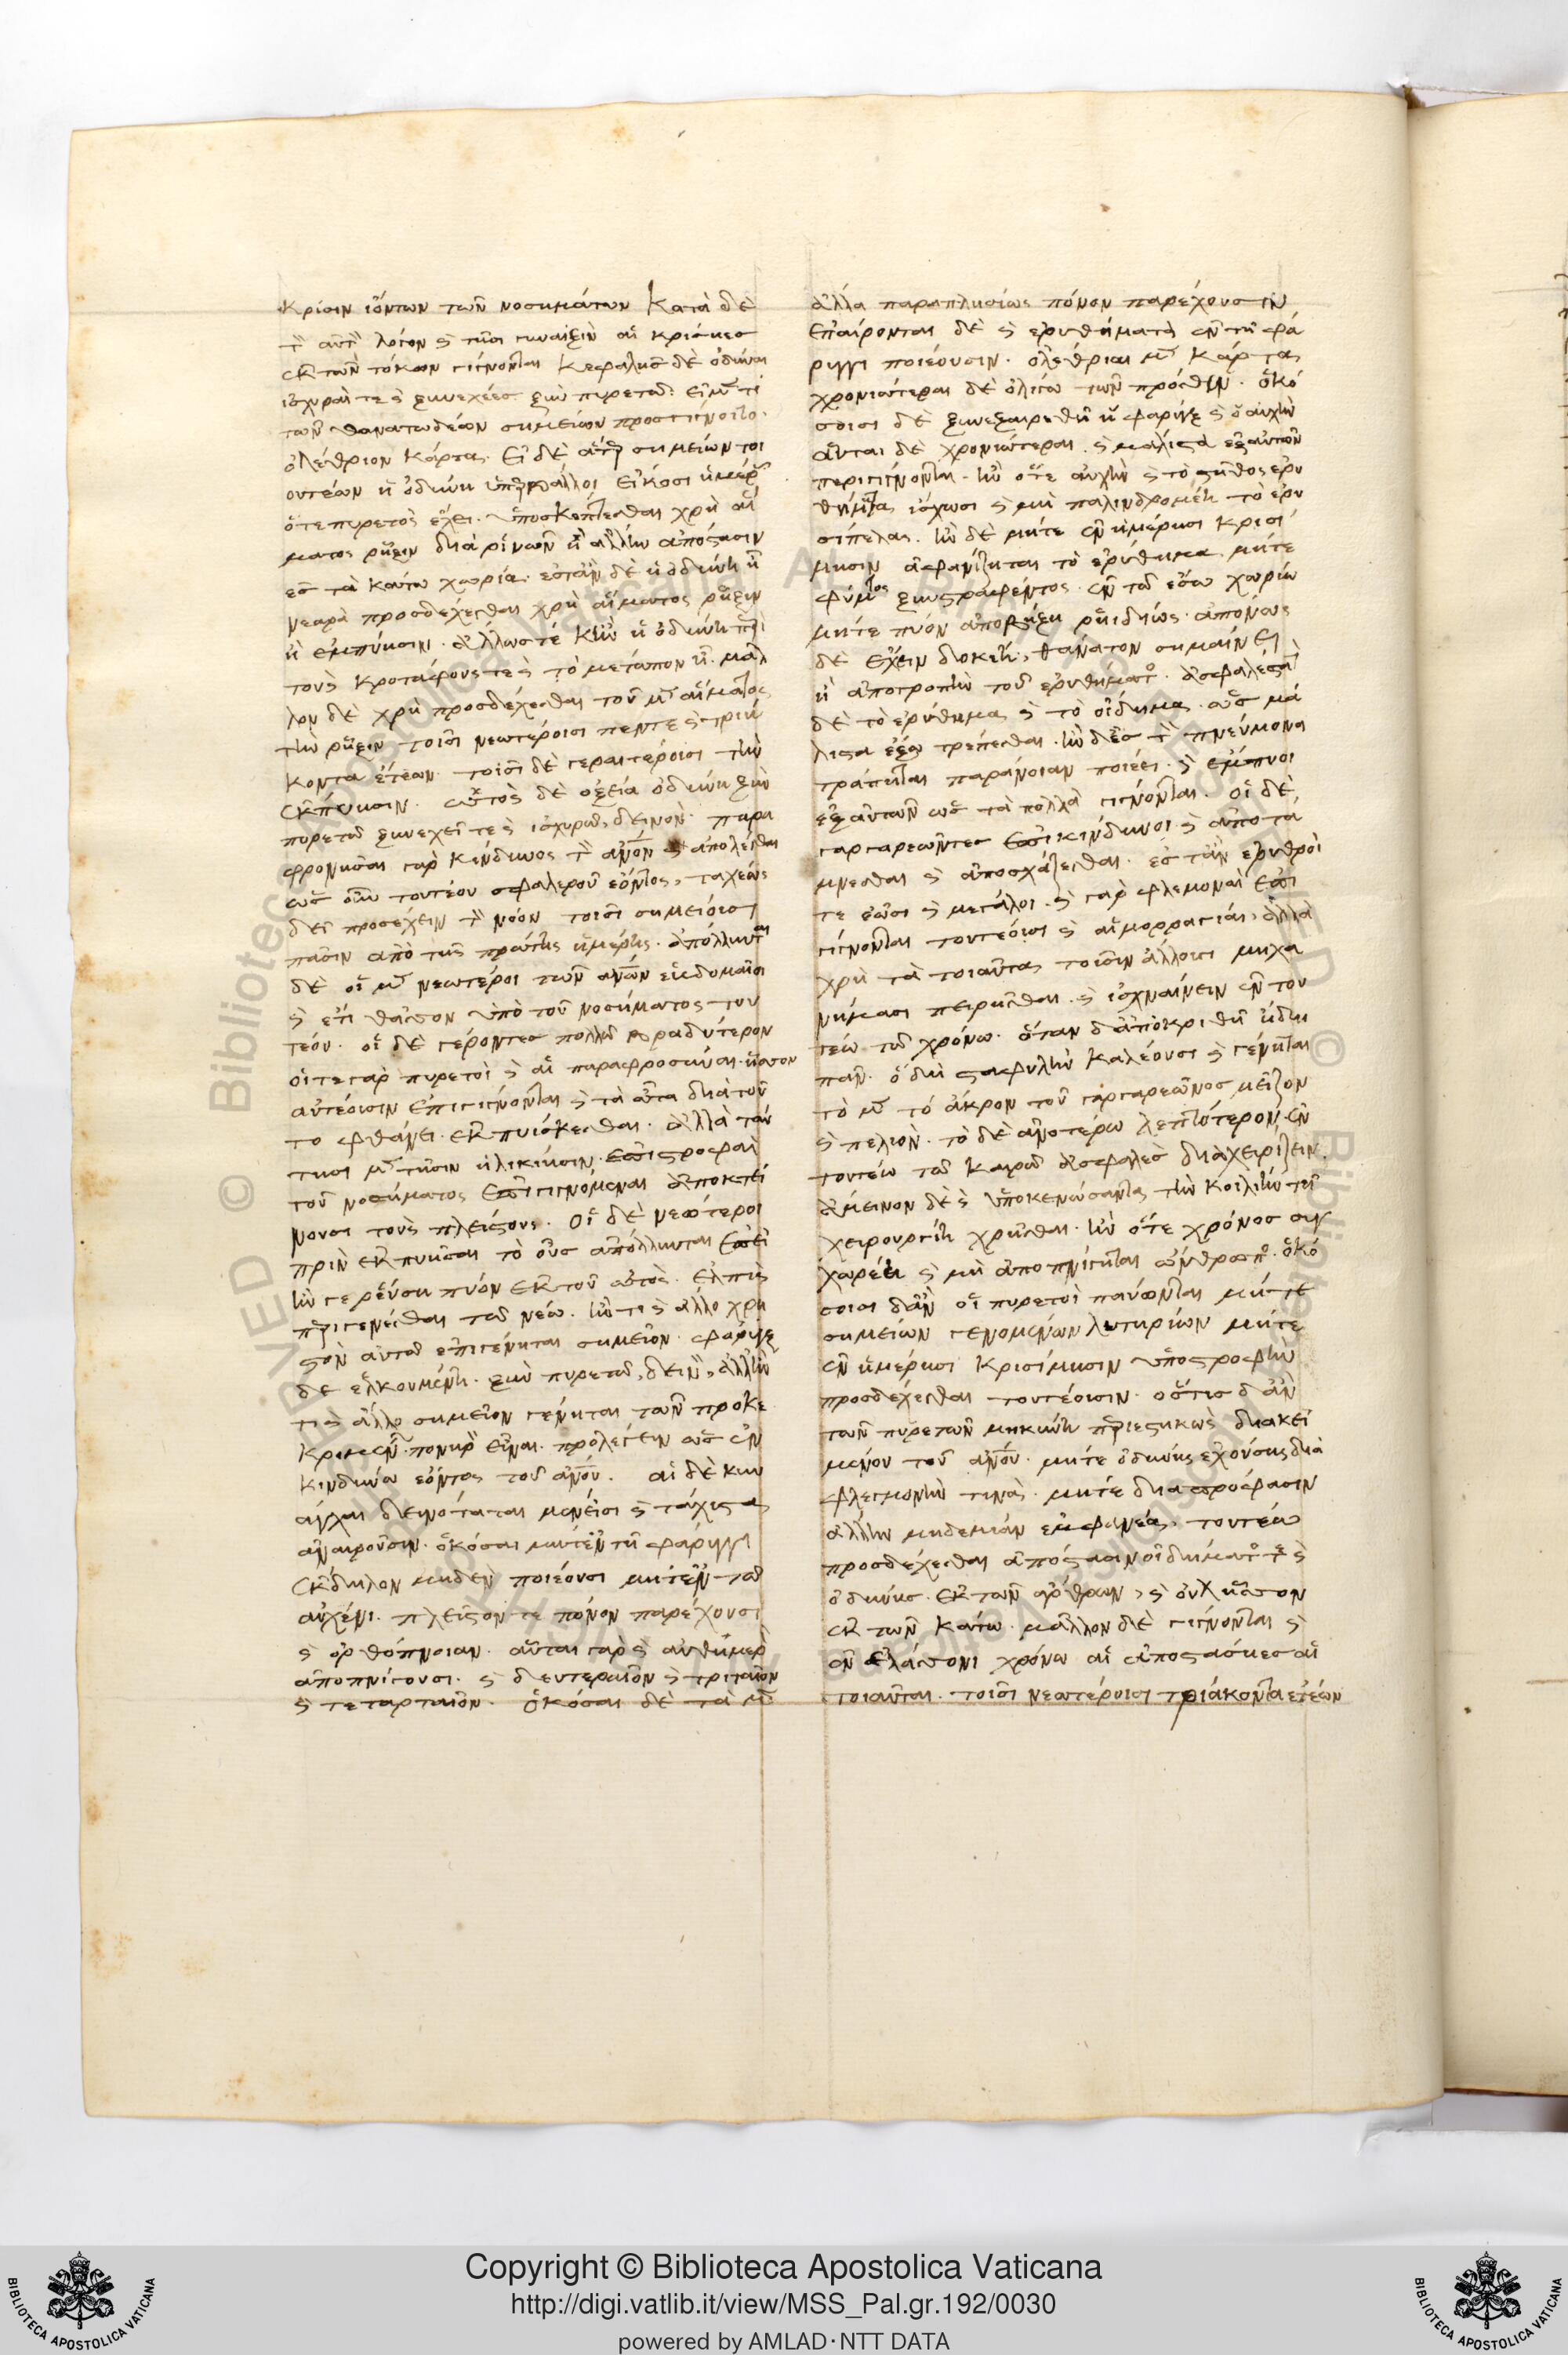 κρίσιν ἰόντων τῶν νοσημάτων κατὰ δὲ
τ̀ αὐτ̀ λόγον ϗ τῆσι γυναιξὶν αἱ κρισιες
ἐκ τῶν τόκων γίγνονται κεφαλῆς δὲ ὀδύναι
ἰσχυραὶ τε ϗ ξυνεχέες ξὺν πυρετῶ· εἰ μ̀ τι
τῶν θανατωδέων σημείων προσγίγνοιτο·
ὀλέθριον κάρτα· εἰ δὲ ἄτερ σημείων τοι
ουτέων ἡ ὀδύνη ὑπερβάλλοι εἴκοσι ἡμέρ
ὅτε πυρετὸς ἔχει· ὑποσκέπτεσθαι χρὴ αἵ
ματος ῥῆξιν διὰ ῥινῶν ἢ ἄλλην ἀπόστασιν
ἐς τὰ κάτω χωρία· ἔστ' ἂν δὲ ἡ ὀδύνη ἦ
νεαρὰ προσδέχεσθαι χρὴ αἵματος ῥῆξιν
ἢ ἐμπύησιν· ἄλλωστε κἢν ἡ ὀδύνη περὶ
τοὺς κροτάφους τε ϗ τὸ μέτωπον ἦ· μᾶλ
λον δὲ χρὴ προσδέχεσθαι τοῦ μ̀ αἵματος
τὴν ῥῆξιν τοῖσι νεωτέροισι πεντε ϗ τριή
κοντα ἐτέων· τοῖσι δὲ γεραιτέροισι τὴν
ἐκπύησιν· ὠτὸς δὲ ὀξείη ὀδύνη ξὺν
πυρετῶ ξυνεχεῖ τε ϗ ἰσχυρῶ, δεινόν· παρα
φρονῆσαι γὰρ κίνδυνος τ̀ ἀνον ϗ ἀπολέσθαι
ὡς οὖν τουτέου σφαλεροῦ ἐόντος, ταχέως
δεῖ προσέχειν τ̀ νόον τοῖσι σημείοισι
πᾶσιν ἀπὸ τῆς πρώτης ἡμέρης· ἀπόλλυνται
δὲ οἱ μ̀ νεωτεροι τῶν ἀνων ἑβδομαῖοι
ϗ ἔτι θᾶσσον ὑπὸ τοῦ νοσήματος του
τέου· οἱ δὲ γέροντες πολλῶ βραδύτερον
οἵ τε γὰρ πυρετοὶ ϗ αἱ παραφροσύναι ἧσσον
αὐτέοισιν ἐπιγίγνονται ϗ τὰ ὦτα διὰ τοῦ
το φθάνει ἐκπυΐσκεσθαι· ἀλλὰ ταύ
τησι μ̀ τῆσιν ἡλικίησιν ἐπιστροφαὶ
τοῦ νοσήματος ἐπιγιγνόμεναι ἀποκτεί
νουσι τοὺς πλείστους· οἱ δὲ νεώτεροι
πρὶν ἐκπυῆσαι τὸ οὖς ἀπόλλυνται ἐπεὶ
ἤν γε ῥεύση πυόν ἐκ τοῦ ὠτός· ἐλπὶς
περιγενέσθαι τῶ νέω· ἤν τι ϗ ἄλλο χρη
στὸν αὐτῶ ἐπιγένηται σημεῖον· φάρυγξ
δὲ ἑλκουμένη· ξὺν πυρετῶ, δειν̀, ἀλλ' ἤν
τι ϗ ἄλλο σημεῖον γένηται τῶν προκε
κριμένων· πονηρὸ εἶναι· προλέγειν ὡς ἐν
κινδύνω ἐόντος τοῦ ἀνου· αἱ δὲ κυν
άγχαι δεινόταται μέν εἰσι ϗ τάχιστα
ἀναιροῦσιν· ὁκόσαι μήτ' ἐν τῆ φάρυγγι
ἔκδηλον μηδὲν ποιέουσι μήτ' ἐν τῶ
αὐχένι· πλεῖστόν τε πόνον παρέχουσι
ϗ ὀρθόπνοιαν· αὗται γὰρ ϗ αὐθήμερὸ
ἀποπνίγουσι· ϗ δευτεραῖον ϗ τριταῖον
ϗ τεταρταῖον· ὁκόσαι δὲ τὰ μ̀
ἄλλα παραπλησίως πόνον παρέχουσιν
ἐπαίρονται δὲ ϗ ἐρυθήματα ἐν τῆ φά
ρυγγι ποιέουσιν· ὀλέθριαι μ̀ κάρτα,
χρονιώτεραι δὲ ὀλίγω τῶν πρόσθεν· ὁκό
σοισι δὲ ξυνεξαιρεθῆ ἡ φάρυγξ ϗ ὁ αὐχὴν
αὗται δὲ χρονιώτεραι· ϗ μάλιστα ἐξ αὐτῶν
περιγίγνονται· ἢν ὅτε αὐχὴν ϗ τὸ στῆθος ἐρυ
θήματα ἴσχωσι ϗ μὴ παλινδρομέη τὸ ἐρυ
σίπελας· ἢν δὲ μήτε ἐν ἡμέρησι κρισί
μησιν ἀφανίζηται τὸ ἐρύθημα μήτε
φύματος ξυστραφέντος· ἐν τῶ ἔσω χωρίω
μήτε πυόν ἀποβήξη ῥηϊδίως· ἀπόνως
δὲ ἔχειν δοκέη, θάνατον σημαίνει
ἢ ἀποτροπὴν τοῦ ἐρυθήματο· ἀσφαλέστατὸ
δὲ τὸ ἐρύθημα ϗ τὸ οἴδημα· ὡς μά
λιστα ἔξω τρέπεσθαι· ἢν δ' ἐς τ̀ πνεύμονα
τράπηται παράνοιαν ποιέει· ϗ ἔμπυοι
ἐξ αὐτῶν ὡς τὰ πολλὰ γίγνονται· οἱ δὲ
γαργαρεῶντες ἐπικίνδυνοι ϗ ἀποτά
μνεσθαι ϗ ἀποσχάζεσθαι· ἔς τ' ἂν ἐρυθροί
τε ἔωσι ϗ μεγάλοι· ϗ γὰρ φλεμοναὶ ἐπι
γίγνονται τουτέοισι ϗ αἱμορραγίαι, ἀλλὰ
χρὴ τὰ τοιαῦτα τοῖσιν ἄλλοισι μηχα
νήμασι πειρῆσθαι· ϗ ἰσχναίνειν ἐν του
τέω τῶ χρόνω· ὅταν δ' ἀποκριθῆ ἤδη
πᾶν· ὃ δὴ σταφυλὴν καλέουσι ϗ γένηται
τὸ μ̀ τό ἄκρον τοῦ γαργαρεῶνος μεῖζον
ϗ πελιὸν· τὸ δὲ ἀνοτέρω λεπτότερον· ἐν
τουτέω τῶ καιρῶ ἀσφαλὲς διαχειρίζειν·
ἄμεινον δὲ ϗ ὑποκενώσαντα τὴν κοιλίην τῆ
χειρουργίη χρῆσθαι· ἢν ὅτε χρόνος συγ
χωρέει ϗ μὴ ἀποπνίγηται ὤνθρωπο· ὁκό
σοισι δ' ἂν οἱ πυρετοὶ παύωνται μήτε
σημείων γενομένων λυτηρίων μήτε
ἐν ἡμέρησι κρισίμησιν ὑποστροφὴν
προσδέχεσθαι τουτέοισιν· ὅστις δ' ἂν
τῶν πυρετῶν μηκύνη περιεστηκὼς διακεί
μένου τοῦ ἀνου· μήτε ὀδύνης ἐχούσης διὰ
φλεγμονὴν τινὰ· μήτε διὰ πρόφασιν
ἄλλην μηδεμιάν ἐμφανέα, τουτέω
προσδέχεσθαι ἀπόστασιν οἰδήματο τε ϗ
ὀδύνης· ἐκ τῶν ἄρθρων, ϗ οὐχ ἧσσον
ἐκ τῶν κάτω· μᾶλλον δὲ γίγνονται ϗ
ἐν ἐλάσσονι χρόνω αἱ ἀποστάσιες αἱ
τοιαῦται· τοῖσι νεωτέροισι τριάκοντα ἐτέων
Copyright © Biblioteca Apostolica Vaticana
http://digi.vatlib.it/view/MSS_Pal.gr.192/0030
powered by AMLAD·NTT DATA
BIBLIOTECA APOSTOLICA VATICANA
BIBLIOTECA APOSTOLICA VATICANA